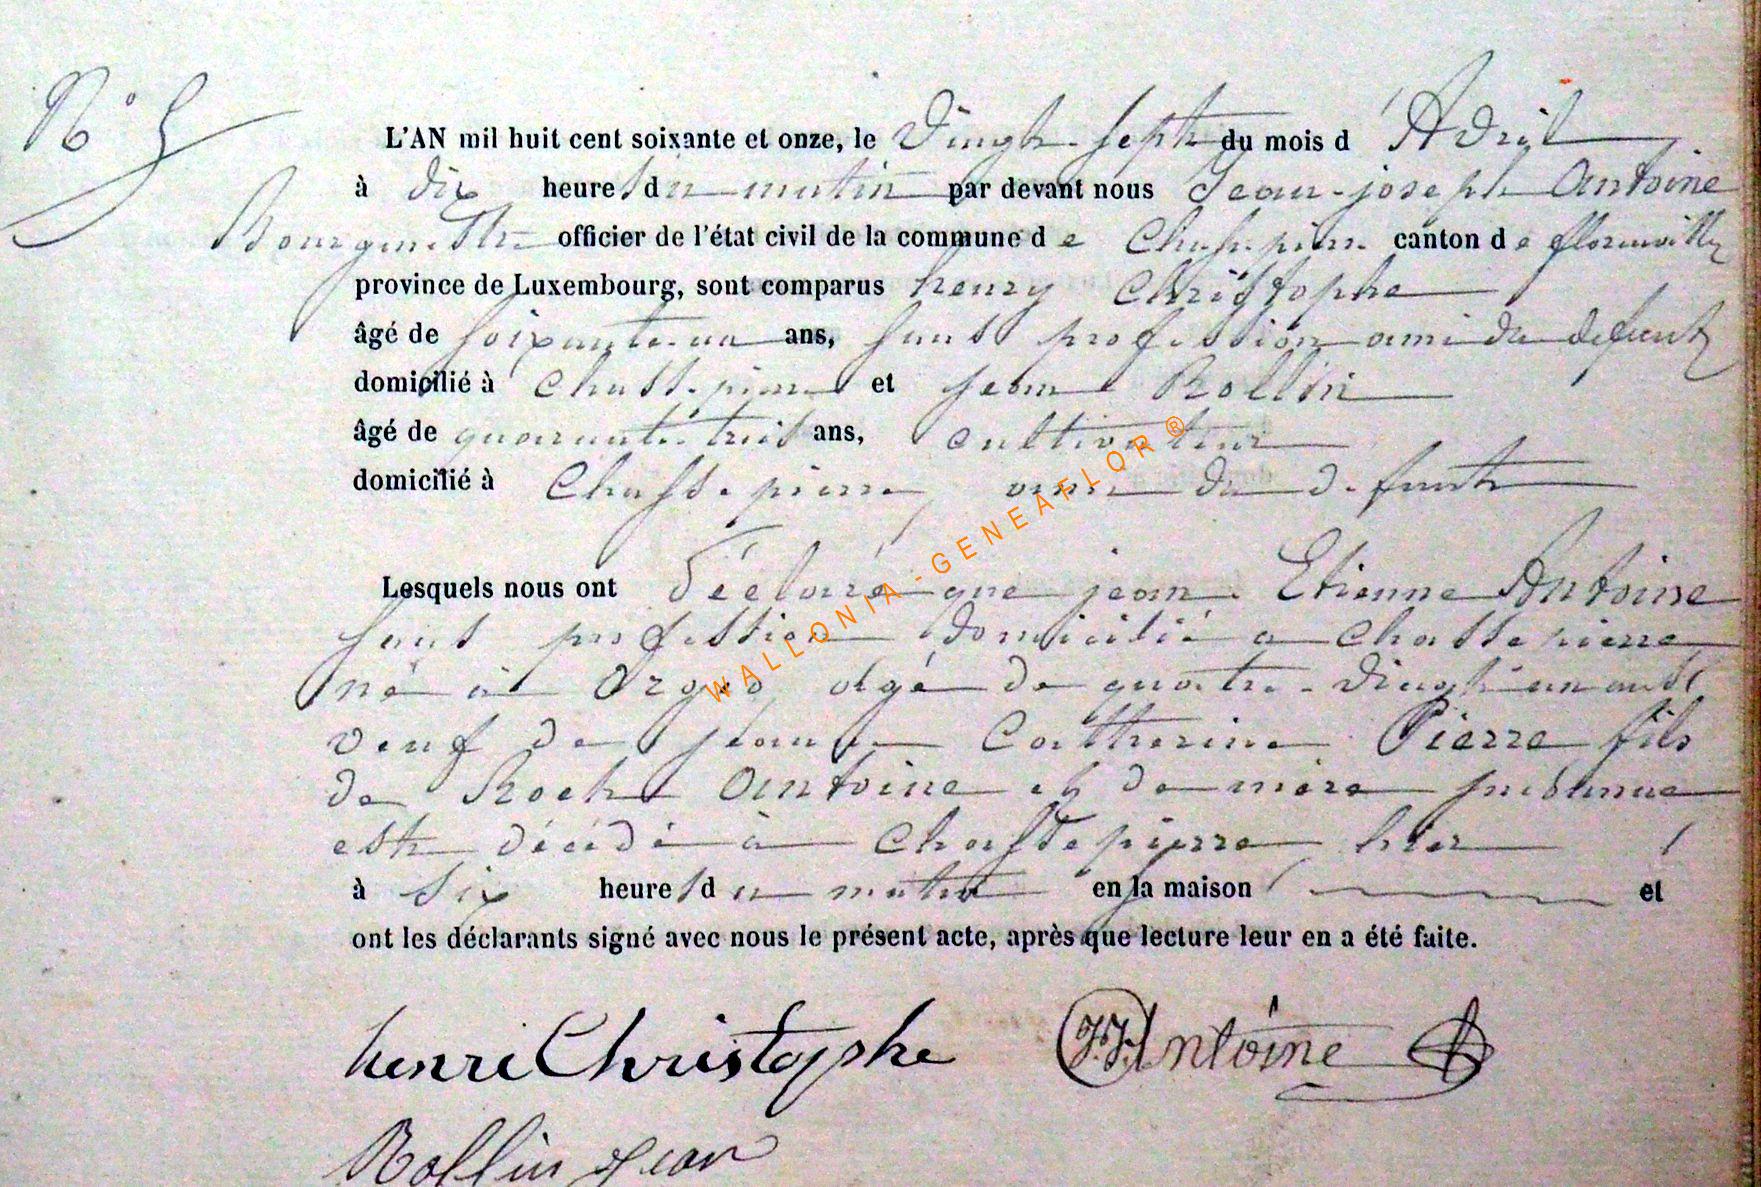 N° 5
L'AN mil huit cent soixante et onze, le Vingt-sept du mois d'Avril
à dix heures du matin par devant nous Jean-joseph Antoine
Bourgmestre officier de l'état civil de la commune de Chassepierre canton de florenville
province de Luxembourg, sont comparus henry Christophe
âgé de soixante-un ans, sans profession ami du défunt
domicilié à Chassepierre et jean Rollin
âgé de quarante-trois ans, cultivateur
domicilié à Chassepierre, ami du défunt
Lesquels nous ont déclaré que jean Etienne Antoine
sans profession domicilié a Chassepierre
né à Orgeo, agé de quatre-vingt un ans,
veuf de jeanne Catherine Pierre fils
de Roch Antoine et de mère inconnue
est décédé à Chassepierre hier
à six heures du matin en la maison et
ont les déclarants signé avec nous le présent acte, après que lecture leur en a été faite.
henri Christophe J.J. Antoine
Rollin Jean
WALLONIA-GENEAFLOR®